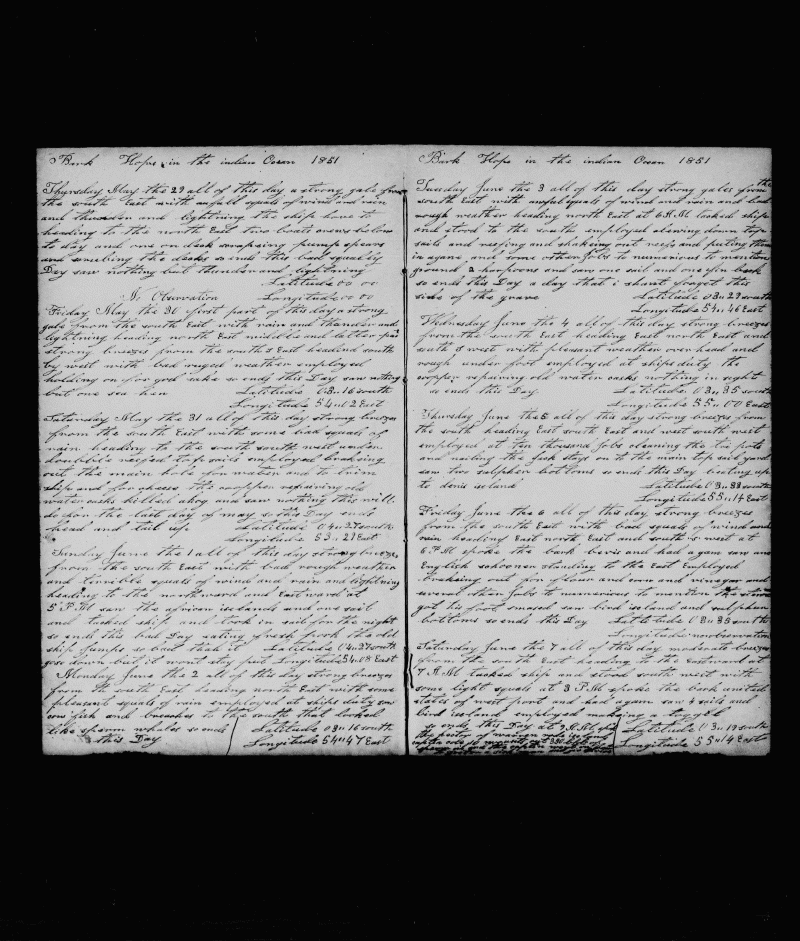 Bark Hope in the indian Ocean 1851
Thursday May the 29 all of this day a strong gale from
the south East with awfull squals of wind and rain
and thunder and lightning the ship hove to
heading to the north East two boats crews below
to day and one on deck scraping pump spears
and scrubing the decks so ends this bad squally
Day saw nothing but thunder and lightning
Latitude 00 00
N Observation Longitude 00 00
Friday May the 30 first part of this day a strong
gale from the south East with rain and thunder and
lightning heading north East middle and latter part
strong breezes from the south & East headind south
by west with bad ruged weather employed
holding on for god sake so ends this Day saw nothing
but one sea hen Latitude 03 16 south
Longitude 54 02 East
Saturday May the 31 all of this day strong breezes
from the south East with some bad squals of
rain heading to the south south west under
doubble reefed topsails employed brakeing
out the main hole for water and to trim
ship and for cheese the cooper repairing old
water casks killed a hog and saw nothing this will
do for the last day of may so this Day ends
head and tail up Latitude 04 27 south
Longitude 53 21 East
Sunday June the 1 all of this day strong breezes
from the south East with bad rough weather
and terrible squals of wind and rain and lightning
heading to the northward and Eastward at
5 P M saw the african islands and one sail
and tacked ship and took in sail for the night
so ends this bad Day eating fresh pork the old
ship jumps so bad that it Latitude 04 27 south
goes down but it wont stay put Longitude 54 08 East
Monday June the 2 all of this day strong breezes
from the south East heading north East with some
pleasant squals of rain employed at ships duty saw
cow fish and breaches to the south that looked
like sperm whales so ends Latitude 03 16 south
this Day Longitude 54 47 East
Bark Hope in the indian Ocean 1851
Tuesday June the 3 all of this day strong gales from the
south East with awful squals of wind and rain and bad
rough weather heading north East at 6 A M tacked ship
and stood to the south employed clewing down top
sails and reefing and shakeing out reefs and puting them
in agane and some other Jobs to numerious to mention
ground 2 harpoons and saw one sail and one fin back
so ends this Day a day that i shant forget this
side of the grave Latitude 03 29 south
Longitude 54 46 East
Wednesday June the 4 all of this day strong breezes
from the south East heading East north East and
south & west with pleasent weather over head and
rough under foot employed at ships duty the
cooper repairing old water casks nothing in sight
so ends this Day Latitude 03 35 south
Longitude 55 00 East
Thursday June the 5 all of this day strong breezes from
the south heading East south East and west south west
employed at ten thousand Jobs cleaning the try pots
and nailing the jack stays on the main top sail yard
saw two sulphur bottoms so ends this Day beating up
to denis island Latitude 03 33 south
Longitude 55 14 East
Friday June the 6 all of this day strong breezes
from the south East with bad squals of wind and
rain heading East north East and south & west at
6 P M spoke the bark and had a gam saw an
English schooner standing to the East Employed
brakeing out for flour and corn and vinegar and
several other Jobs to numerious to mention
got his foot saw bird island and sulphur
bottoms so ends this Day Latitude 03 38 south
Longitude no observation
Saturday June the 7 all of this day moderate breezes
from the south East heading to the Eastward at
7 A M tacked ship and stood south west with
some light squals at 3 P M spoke the bark united
states of west port and had a gam saw 4 sails and
bird island employed makeing a
so ends this Day at 9 A M Latitude 03 19 south
Longitude 55 14 East